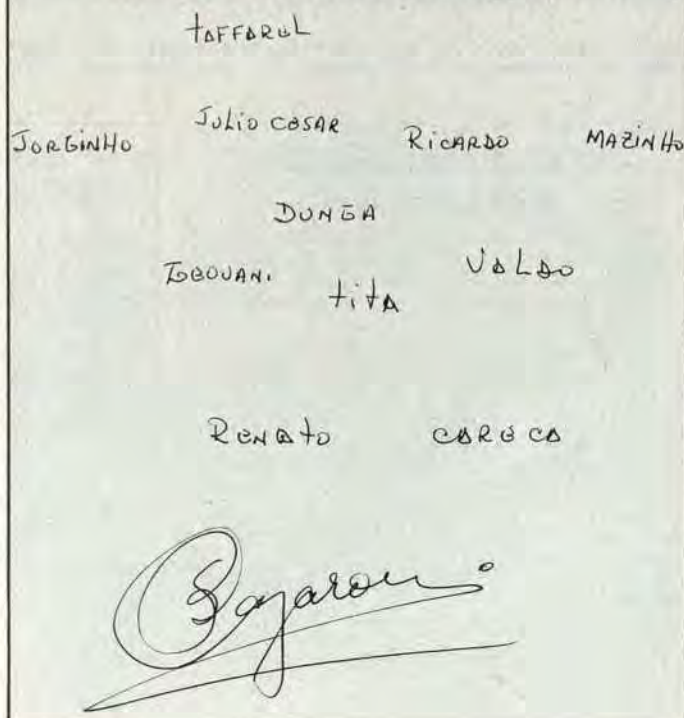 TAFFAREL
JORGINHO JULIO CESAR RICARDO MAZINHO
DUNGA
GEOVANI TITA VALDO
RENATO CARECA
Lazaroni